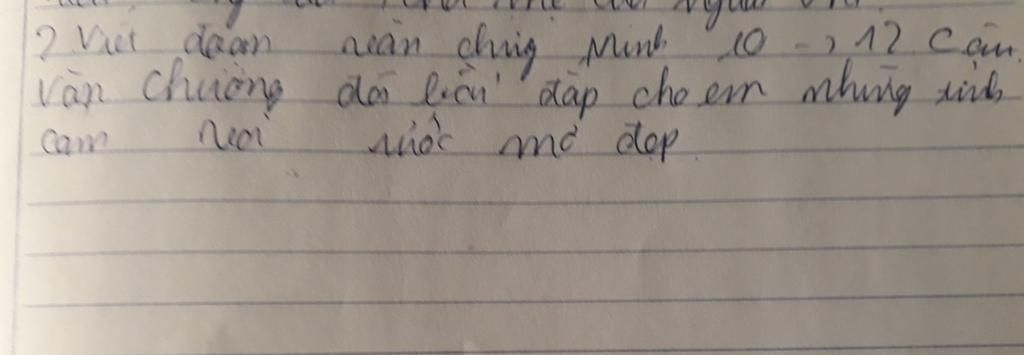 2 Viết đoạn văn chứng Minh 10 -> 12 Câu.
Văn Chương đã bồi đắp cho em những tình
cảm với ước mơ đẹp